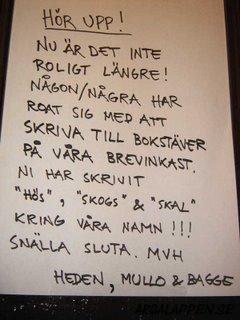 HÖR UPP!
NU ÄR DET INTE
ROLIGT LÄNGRE!
NÅGON/NÅGRA HAR
ROAT SIG MED ATT
SKRIVA TILL BOKSTÄVER
PÅ VÅRA BREVINKAST.
NI HAR SKRIVIT
"HÖS", "SKOGS" & "SKAL"
KRING VÅRA NAMN!!!
SNÄLLA SLUTA. MVH
HEDEN, MULLO & BAGGE
ARGALAPPEN.SE